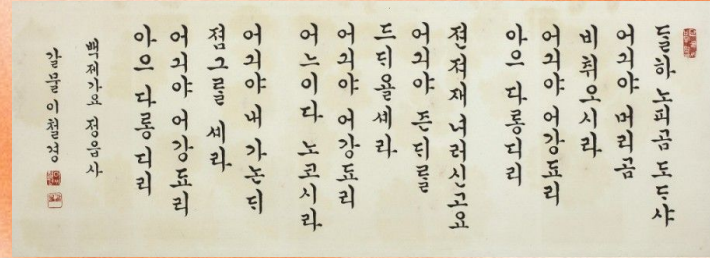 ᄃᆞᆯ하 노피곰 도ᄃᆞ샤
어긔야 머리곰
비취오시라
어긔야 어강됴리
아으 다롱디리
젼져재 녀러신고요
어긔야 즌ᄃᆡ를
드ᄃᆡ욜셰라
어긔야 어강됴리
어느이다 노코시라
어긔야 내 가논ᄃᆡ
졈그를 셰라
어긔야 어강됴리
아으 다롱디리
백제가요 정읍사
갈물 이철경